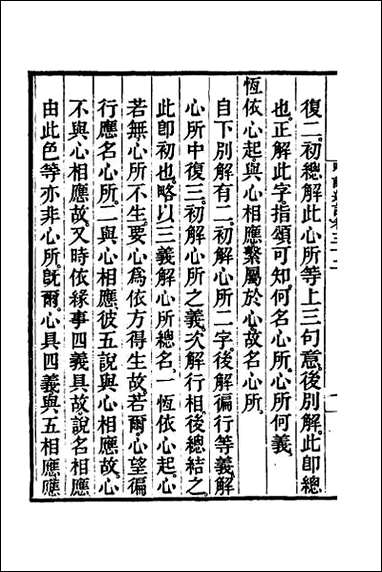 復二初總解此心所等上三句意後別解此卽總
也正解此字指頌可知何名心所心所何義
恆依心起與心相應繫屬於心故名心所
自下別解有二初解心所二字後解徧行等義解
心所中復三初解心所之義次解行相後總結之
此卽初也略以三義解心所總名一恆依心起心
若無心所不生要心為依方得生故若爾心望徧
行應名心所二與心相應彼五說與心相應故心
不與心相應故又時依緣事四義具故說名相應
由此色等亦非心所旣爾心具四義與五相應應